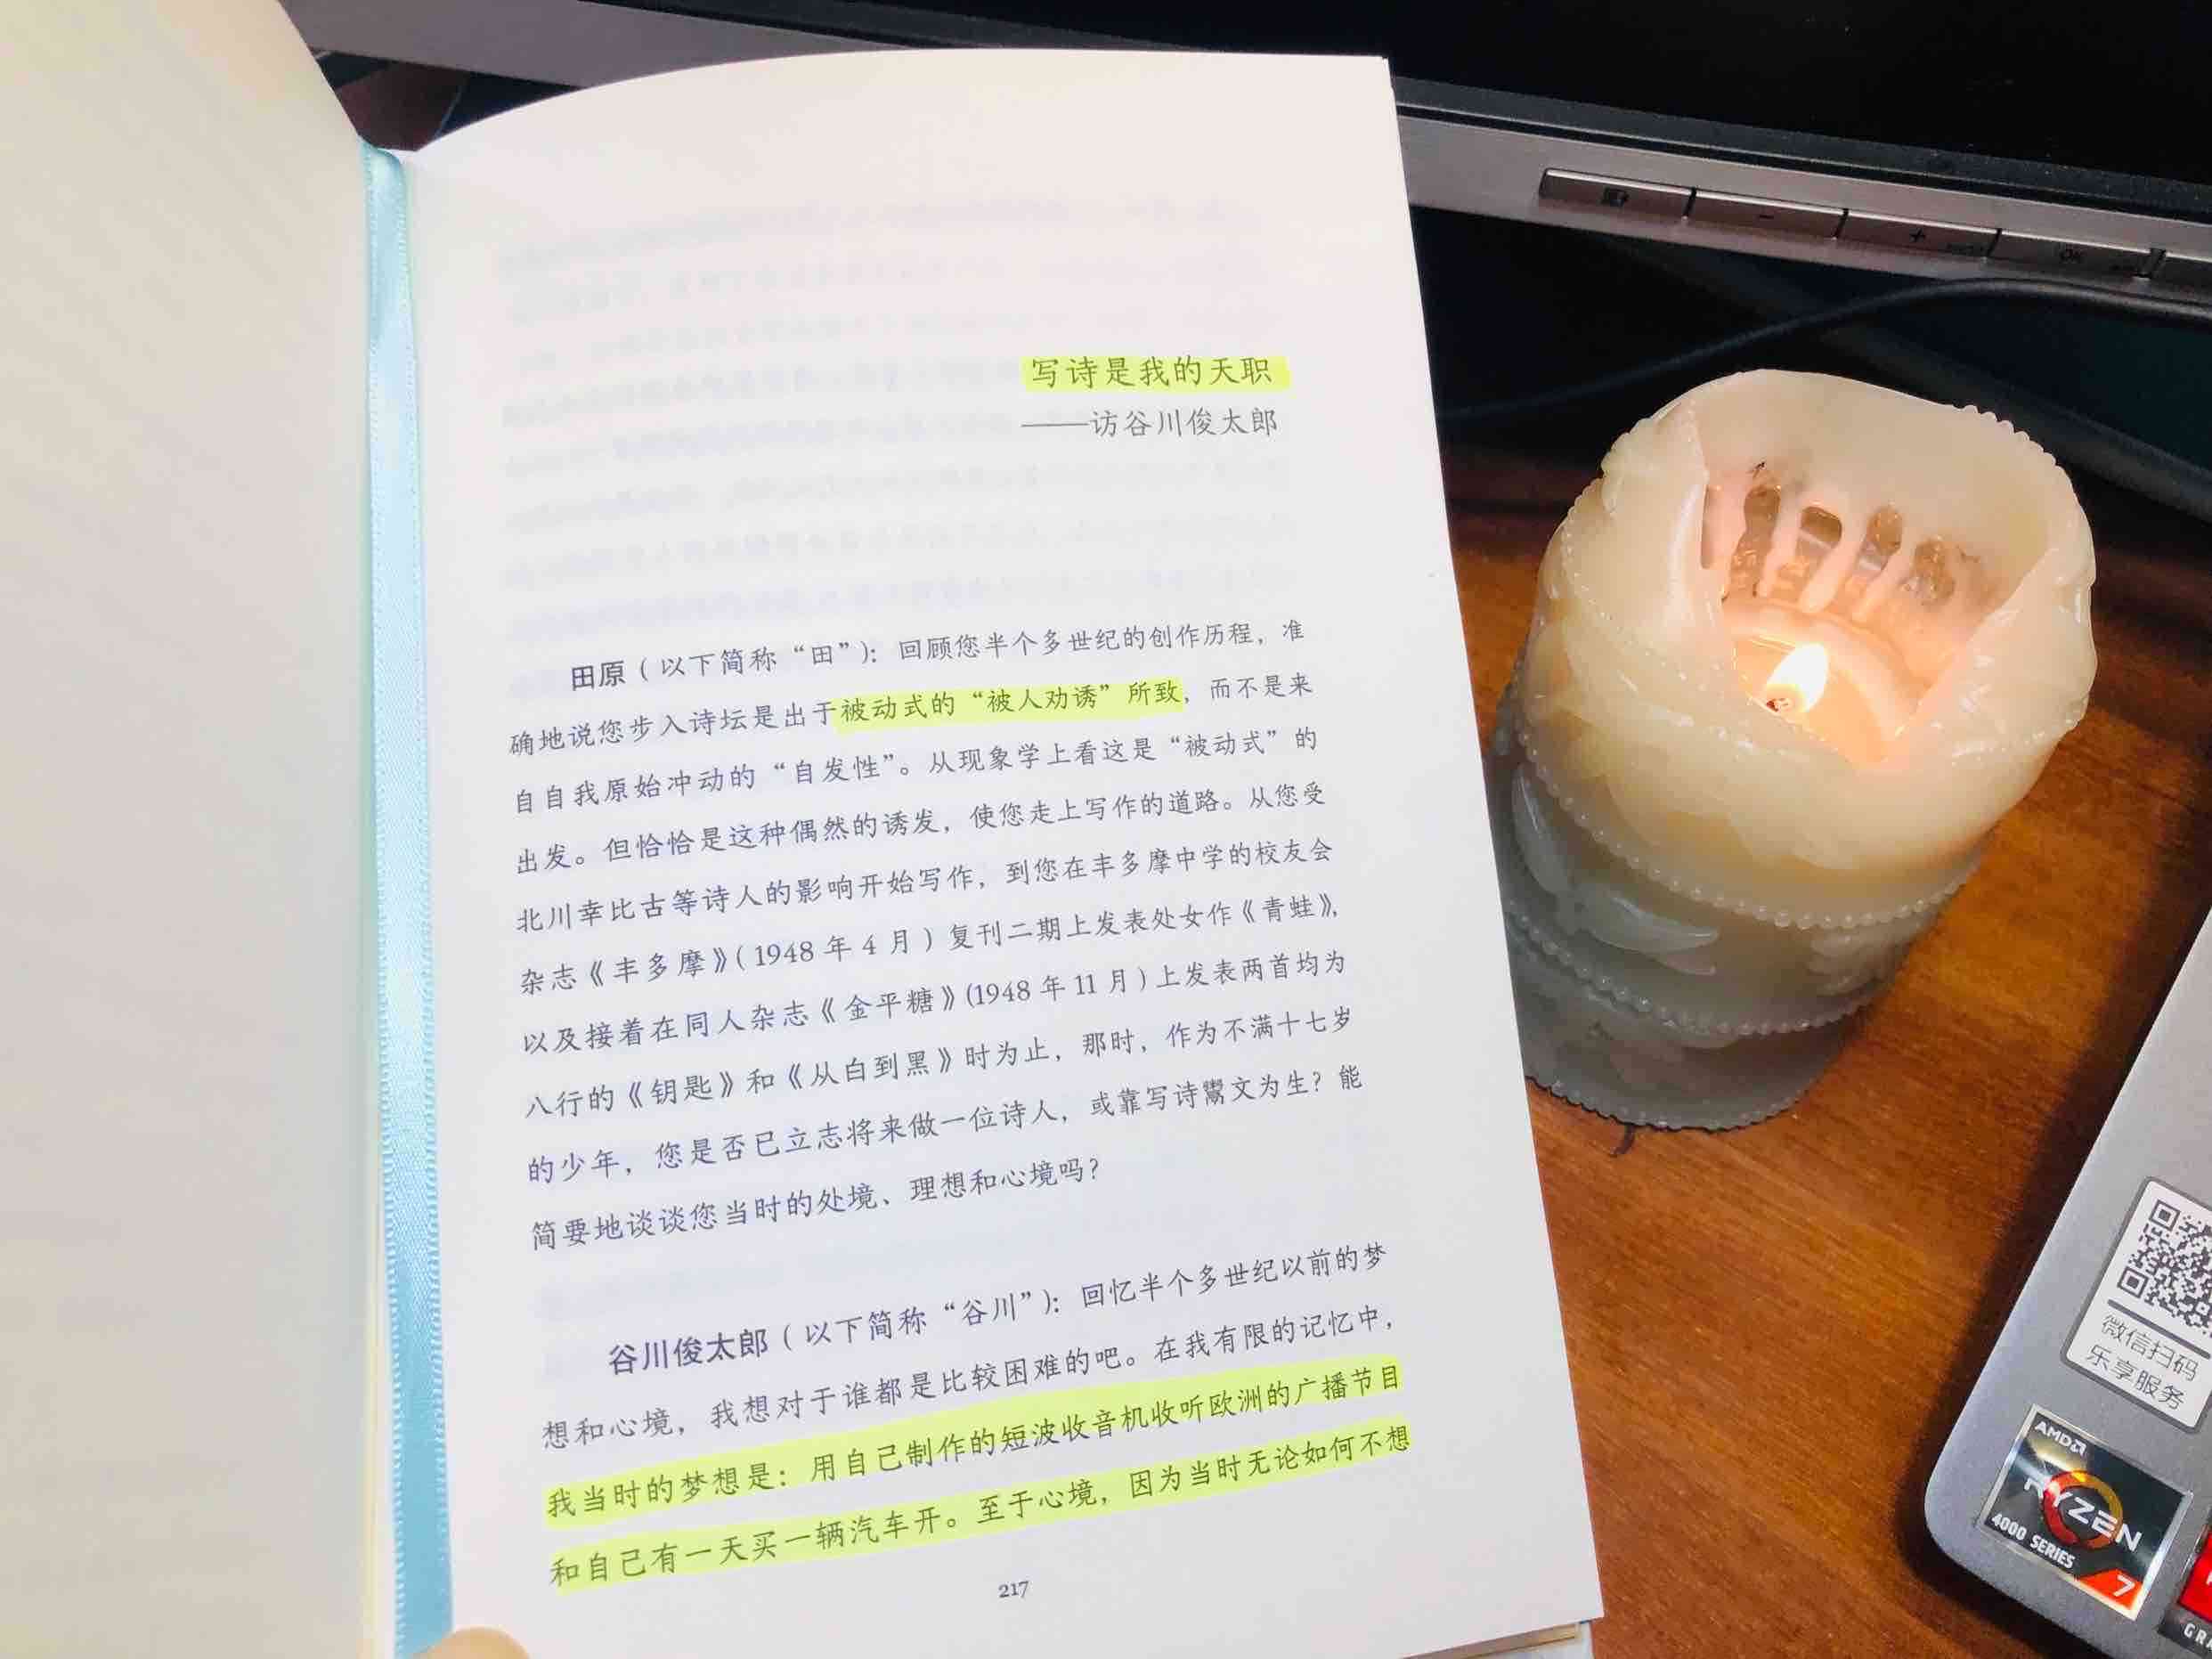 写诗是我的天职
——访谷川俊太郎
田原（以下简称“田”）：回顾您半个多世纪的创作历程，准
确地说您步入诗坛是出于被动式的“被人劝诱”所致，而不是来
自自我原始冲动的“自发性”。从现象学上看这是“被动式”的
出发。但恰恰是这种偶然的诱发，使您走上写作的道路。从您受
北川幸比古等诗人的影响开始写作，到您在丰多摩中学的校友会
杂志《丰多摩》（1948 年 4 月）复刊二期上发表处女作《青蛙》，
以及接着在同人杂志《金平糖》（1948 年 11 月）上发表两首均为
八行的《钥匙》和《从白到黑》时为止，那时，作为不满十七岁
的少年，您是否已立志将来做一位诗人，或靠写诗鬻文为生？能
简要地谈谈您当时的处境、理想和心境吗？
谷川俊太郎（以下简称“谷川”）：回忆半个多世纪以前的梦
想和心境，我想对于谁都是比较困难的吧。在我有限的记忆中，
我当时的梦想是：用自己制作的短波收音机收听欧洲的广播节目
和自己有一天买一辆汽车开。至于心境，因为当时无论如何不想
217
OK
微信扫码
乐享服务
AMD
RYZEN
4000 SERIES
7